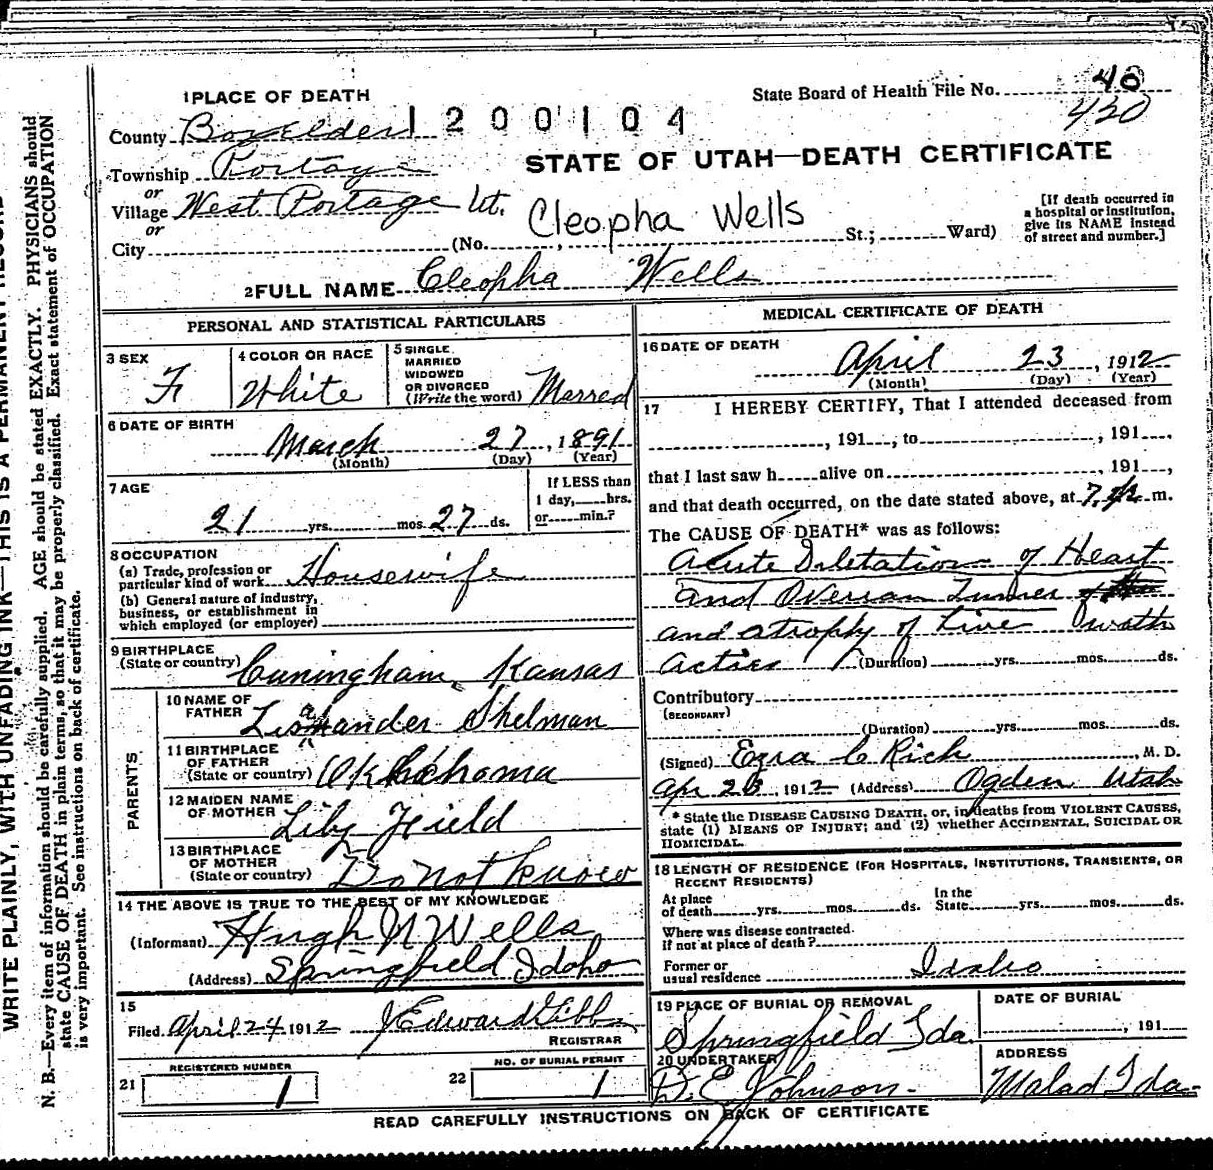 1 PLACE OF DEATH
State Board of Health File No. 40
430
County Boxelder 1200104
STATE OF UTAH—DEATH CERTIFICATE
Township Portage
or
Village West Portage Ut.
or
City (No. , Cleopha Wells St.; Ward)
[If death occurred in a hospital or institution, give its NAME instead of street and number.]
2 FULL NAME Cleopha Wells
PERSONAL AND STATISTICAL PARTICULARS
3 SEX F
4 COLOR OR RACE White
5 SINGLE
MARRIED
WIDOWED
OR DIVORCED
(Write the word) Marred
6 DATE OF BIRTH
March 27, 1891
(Month) (Day) (Year)
7 AGE
21 yrs. mos. 27 ds.
If LESS than
1 day, hrs.
or min.?
8 OCCUPATION
(a) Trade, profession or
particular kind of work Housewife
(b) General nature of industry,
business, or establishment in
which employed (or employer)
9 BIRTHPLACE
(State or country) Cuningham, Kansas
PARENTS
10 NAME OF
FATHER Shelman
11 BIRTHPLACE
OF FATHER
(State or country) Oklahoma
12 MAIDEN NAME
OF MOTHER Lily Field
13 BIRTHPLACE
OF MOTHER
(State or country) Do not know
14 THE ABOVE IS TRUE TO THE BEST OF MY KNOWLEDGE
(Informant) Hugh N Wells
(Address) Springfield Idaho
15
Filed April 24 1912 J Edward Gibbs
REGISTRAR
21 REGISTERED NUMBER 1
22 NO. OF BURIAL PERMIT 1
MEDICAL CERTIFICATE OF DEATH
16 DATE OF DEATH
April 23, 1912
(Month) (Day) (Year)
17 I HEREBY CERTIFY, That I attended deceased from
, 191 , to , 191 .
that I last saw h alive on , 191 ,
and that death occurred, on the date stated above, at m.
The CAUSE OF DEATH* was as follows:
Acute Diletation of Heart
and Overian Tumer
and atrophy of Live with
(Duration) yrs. mos. ds.
Contributory
(SECONDARY)
(Duration) yrs. mos. ds.
(Signed) Ezra C Rich M. D.
Apr 1912 (Address) Ogden Utah
* State the DISEASE CAUSING DEATH, or, in deaths from VIOLENT CAUSES,
state (1) MEANS OF INJURY; and (2) whether ACCIDENTAL, SUICIDAL OR
HOMICIDAL.
18 LENGTH OF RESIDENCE (FOR HOSPITALS, INSTITUTIONS, TRANSIENTS, OR
RECENT RESIDENTS)
At place
of death yrs. mos. ds.
In the
State yrs. mos. ds.
Where was disease contracted.
if not at place of death?
Former or
usual residence Idaho
19 PLACE OF BURIAL OR REMOVAL
Springfield Ida.
DATE OF BURIAL
, 191
20 UNDERTAKER
D. E. Johnson.
ADDRESS
Malad Ida.
READ CAREFULLY INSTRUCTIONS ON BACK OF CERTIFICATE
WRITE PLAINLY, WITH UNFADING INK—THIS IS A PERMANENT RECORD
N. B.—Every item of information should be carefully supplied. AGE should be stated EXACTLY. PHYSICIANS should
state CAUSE OF DEATH in plain terms, so that it may be properly classified. Exact statement of OCCUPATION
is very important. See instructions on back of certificate.